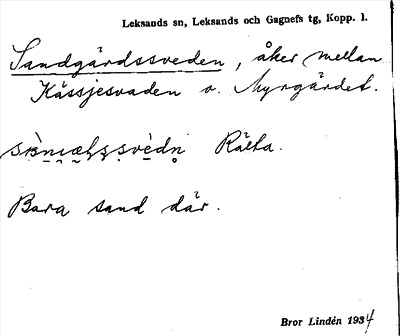 Leksands sn, Leksands och Gagnefs tg, Kopp. l.
Sandgärdssveden, åker mellan
Kässjesvaden o. Myrgärdet.
Rälta.
Bara sand där.
Bror Lindén 1934